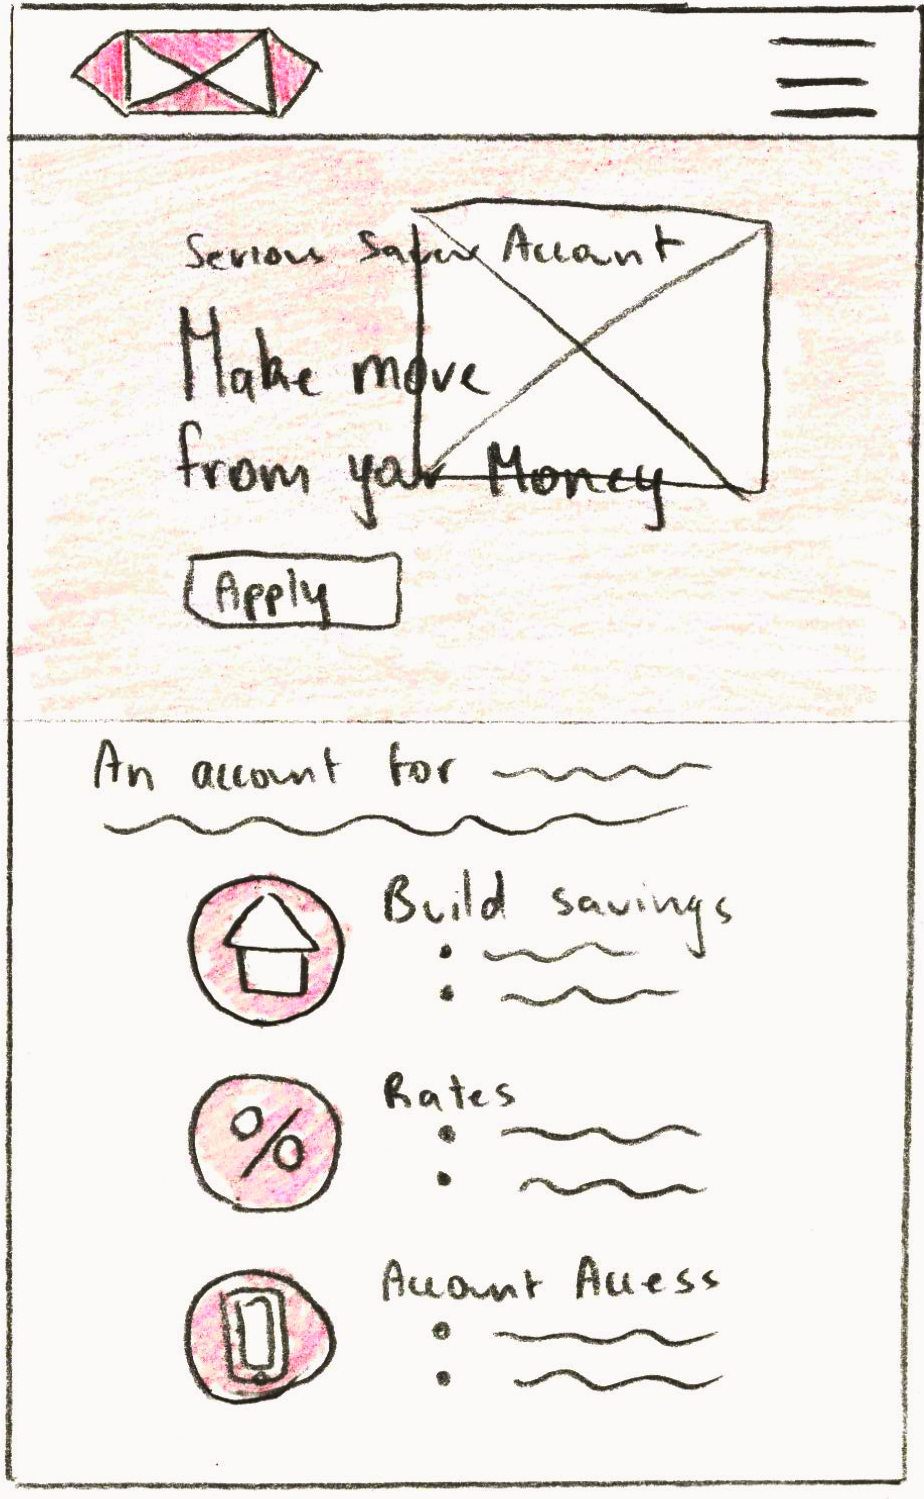 Serious Saver Account
Make move
from your Money
Apply
An account for
Build savings
Rates
%
Account Access